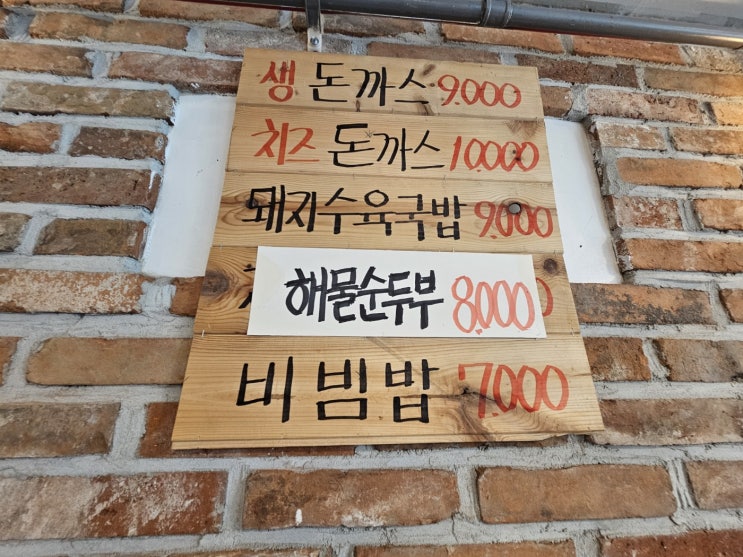 생 돈까스 9.000
치즈 돈까스 10.000
돼지수육국밥 9.000
해물순두부 8.000
비빔밥 7.000